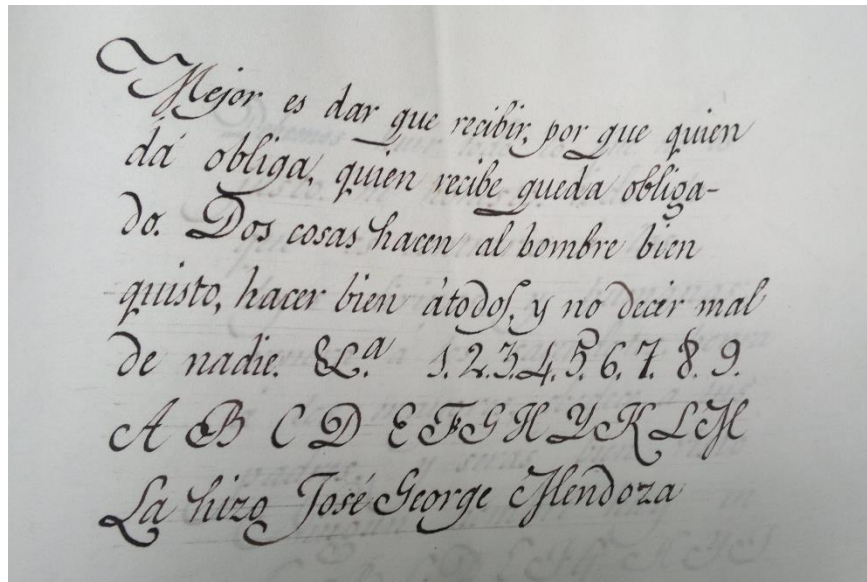 Mejor es dar que recibir, por que quien
dá obliga, quien recibe queda obliga-
do. Dos cosas hacen al hombre bien
quisto, hacer bien átodos, y no decir mal
de nadie. &L.a 1.2.3.4.5.6.7.8.9.
A B C D E F G H Y K L M
La hizo José George Mendoza